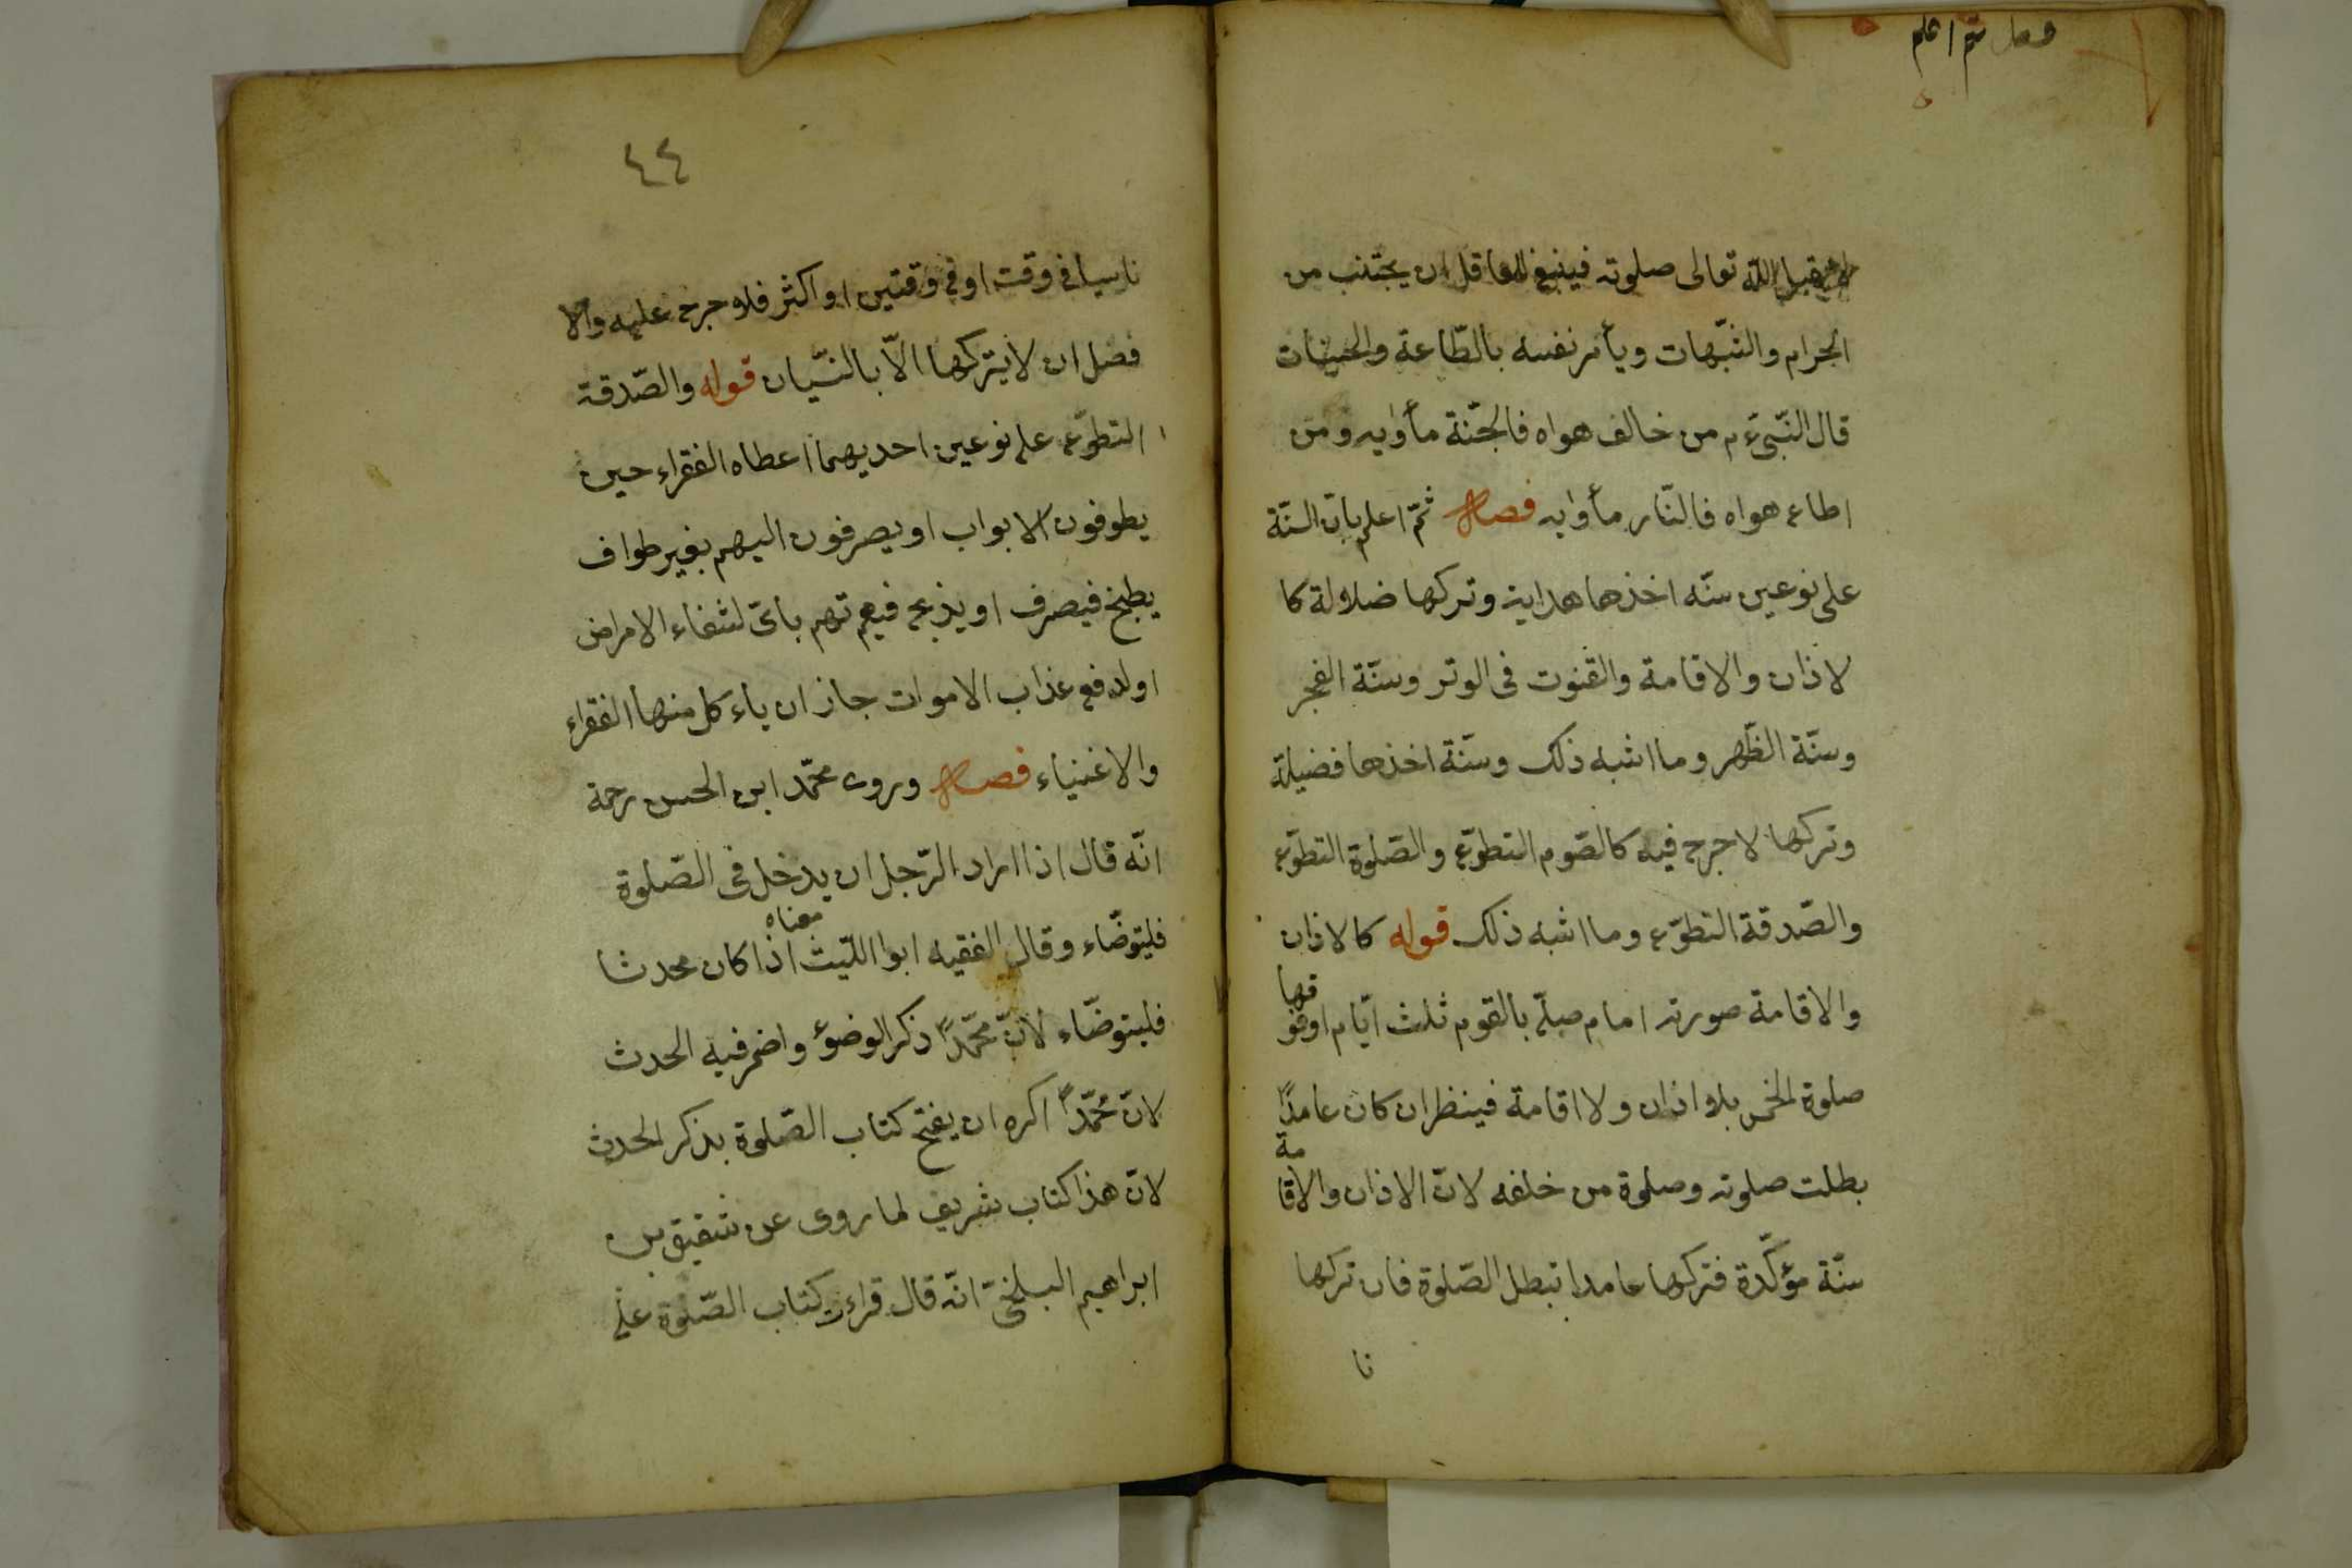 ثم اعلم
لا يقبل الله تعالى صلوته فينبغى للعاقل ان يجتنب من
الحرام والشّبهات ويأمر نفسه بالطّاعة والحسنات
قال النّبىّ ءم من خالف هواه فالجنّة مأوٰيه ومن
اطاع هواه فالنّار مأوٰيه فصل ثمّ اعلم بانّ السنّة
على نوعين سنّه اخذها هداية وتركها ضلالة كا
لاذان والاقامة والقنوت فى الوتر وسنّة الفجر
وسنّة الظّهر وما اشبه ذلك وسنّة اخذها فضيلة
وتركها لا حرج فيه كالصّوم التطوّع والصّلوة التطوّع
والصّدقة التطوّع وما اشبه ذلك قوله كالاذان
والاقامة صورته امام صلّى بالقوم ثلث ايّام او فو
قها
صلوة الخمس بلا اذان ولا اقامة فينظر ان كان عامدًا
بطلت صلوته وصلوة من خلفه لانّ الاذان والاقا
مة
سنّة مؤكّدة فتركها عامدا تبطل الصّلوة فان تركها
نا
٤٤
ناسيا فى وقت او فى وقتين او اكثر فلا حرج عليه والا
فضل ان لا يتركها الاّ بالنّسيان قوله والصّدقة
التطوّع على نوعين احديهما اعطاه الفقراء حين
يطوفون الابواب او يصرفون اليهم بغير طواف
يطبخ فيصرف او يذبح فيعم تهم بأىّ لشفاء الامراض
او لدفع عذاب الاموات جاز ان ياء كل منها الفقراء
والاغنياء فصل وروى محمّد ابن الحسن رحمة
انّه قال اذا اراد الرّجل ان يدخل فى الصّلوة
فليتوضّاء وقال الفقيه ابوا اللّيث معناه اذا كان محدثا
فليتوضّاء لانّ محمّدًا ذكر الوضوء واضمر فيه الحدث
لانّ محمّدًا اكره ان يفتح كتاب الصّلوة بذكر الحدث
لانّ هذا كتاب شريف لما روى عن شقيق بن
ابراهيم البلخىّ انّه قال قراءت كتاب الصّلوة على